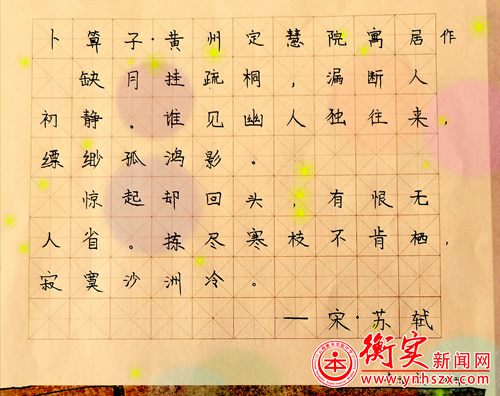 卜算子·黄州定慧院寓居作
缺月挂疏桐，漏断人
初静。谁见幽人独往来，
缥缈孤鸿影。
惊起却回头，有恨无
人省。拣尽寒枝不肯栖，
寂寞沙洲冷。
——宋·苏轼
衡实新闻网
www.ynhszx.com